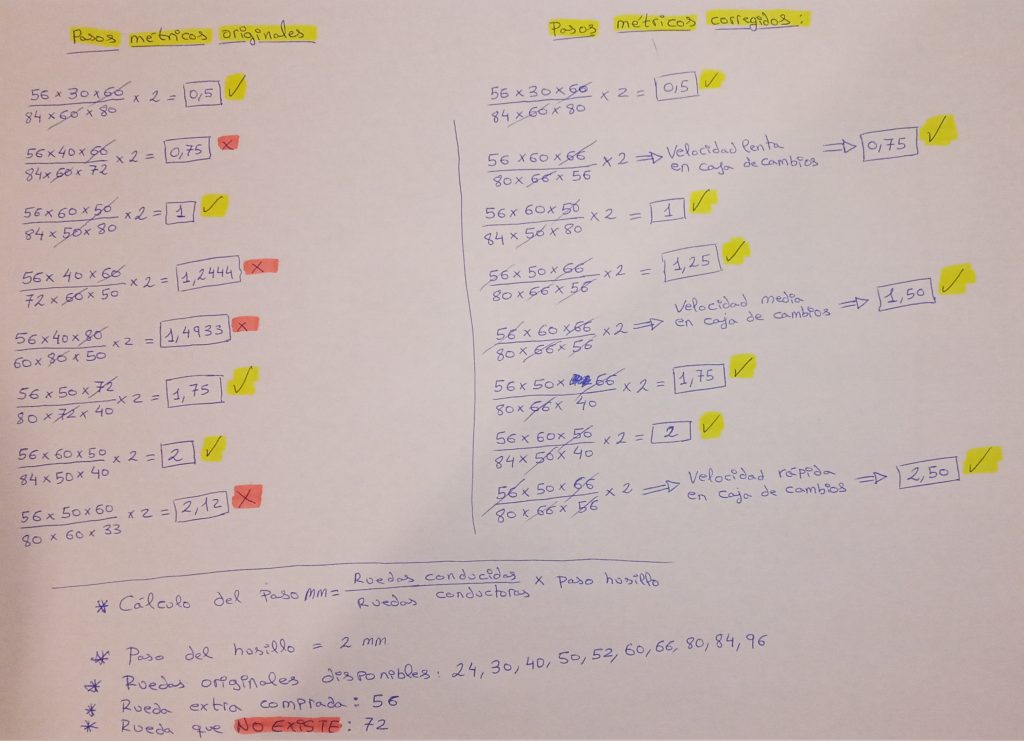 Pasos métricos originales
56 x 30 x 66 / 84 x 60 x 80 x 2 = 0,5 ✓
56 x 40 x 66 / 84 x 60 x 72 x 2 = 0,75 x
56 x 60 x 50 / 84 x 50 x 80 x 2 = 1 ✓
56 x 40 x 66 / 72 x 66 x 50 x 2 = 1,2444 x
56 x 40 x 80 / 60 x 80 x 50 x 2 = 1,4933 x
56 x 50 x 72 / 80 x 72 x 40 x 2 = 1,75 ✓
56 x 60 x 50 / 84 x 50 x 40 x 2 = 2 ✓
56 x 50 x 60 / 80 x 60 x 33 x 2 = 2,12 x
Pasos métricos corregidos:
56 x 30 x 66 / 84 x 66 x 80 x 2 = 0,5 ✓
56 x 60 x 66 / 80 x 66 x 56 x 2 ⇒ Velocidad lenta
en caja de cambios ⇒ 0,75 ✓
56 x 60 x 50 / 84 x 50 x 80 x 2 = 1 ✓
56 x 50 x 66 / 80 x 66 x 56 x 2 = 1,25 ✓
56 x 60 x 66 / 80 x 66 x 56 x 2 ⇒ Velocidad media
en caja de cambios ⇒ 1,50 ✓
56 x 50 x 66 / 80 x 66 x 40 x 2 = 1,75 ✓
56 x 60 x 56 / 84 x 56 x 40 x 2 = 2 ✓
56 x 50 x 66 / 80 x 66 x 56 x 2 ⇒ Velocidad rápida
en caja de cambios ⇒ 2,50 ✓
* Cálculo del paso MM = Ruedas conducidas / Ruedas conductoras x paso husillo
* Paso del husillo = 2 mm
* Ruedas originales disponibles: 24, 30, 40, 50, 52, 60, 66, 80, 84, 96
* Rueda extra comprada: 56
* Rueda que NO EXISTE: 72